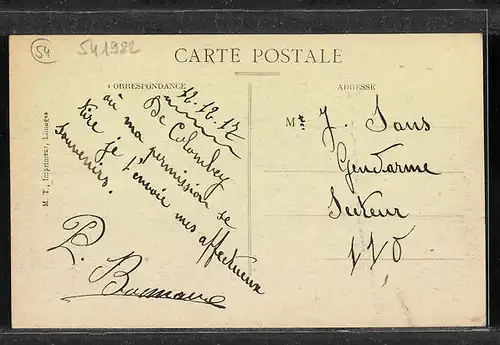 54
541982
CARTE POSTALE
CORRESPONDANCE
ADRESSE
M. T., Imprimeur, Limoges
12.12.17
De Colombey
où ma permission se
tire je t'envoie mes affectueux
souvenirs.
P.
Mr J. Sans
Gendarme
Secteur
110